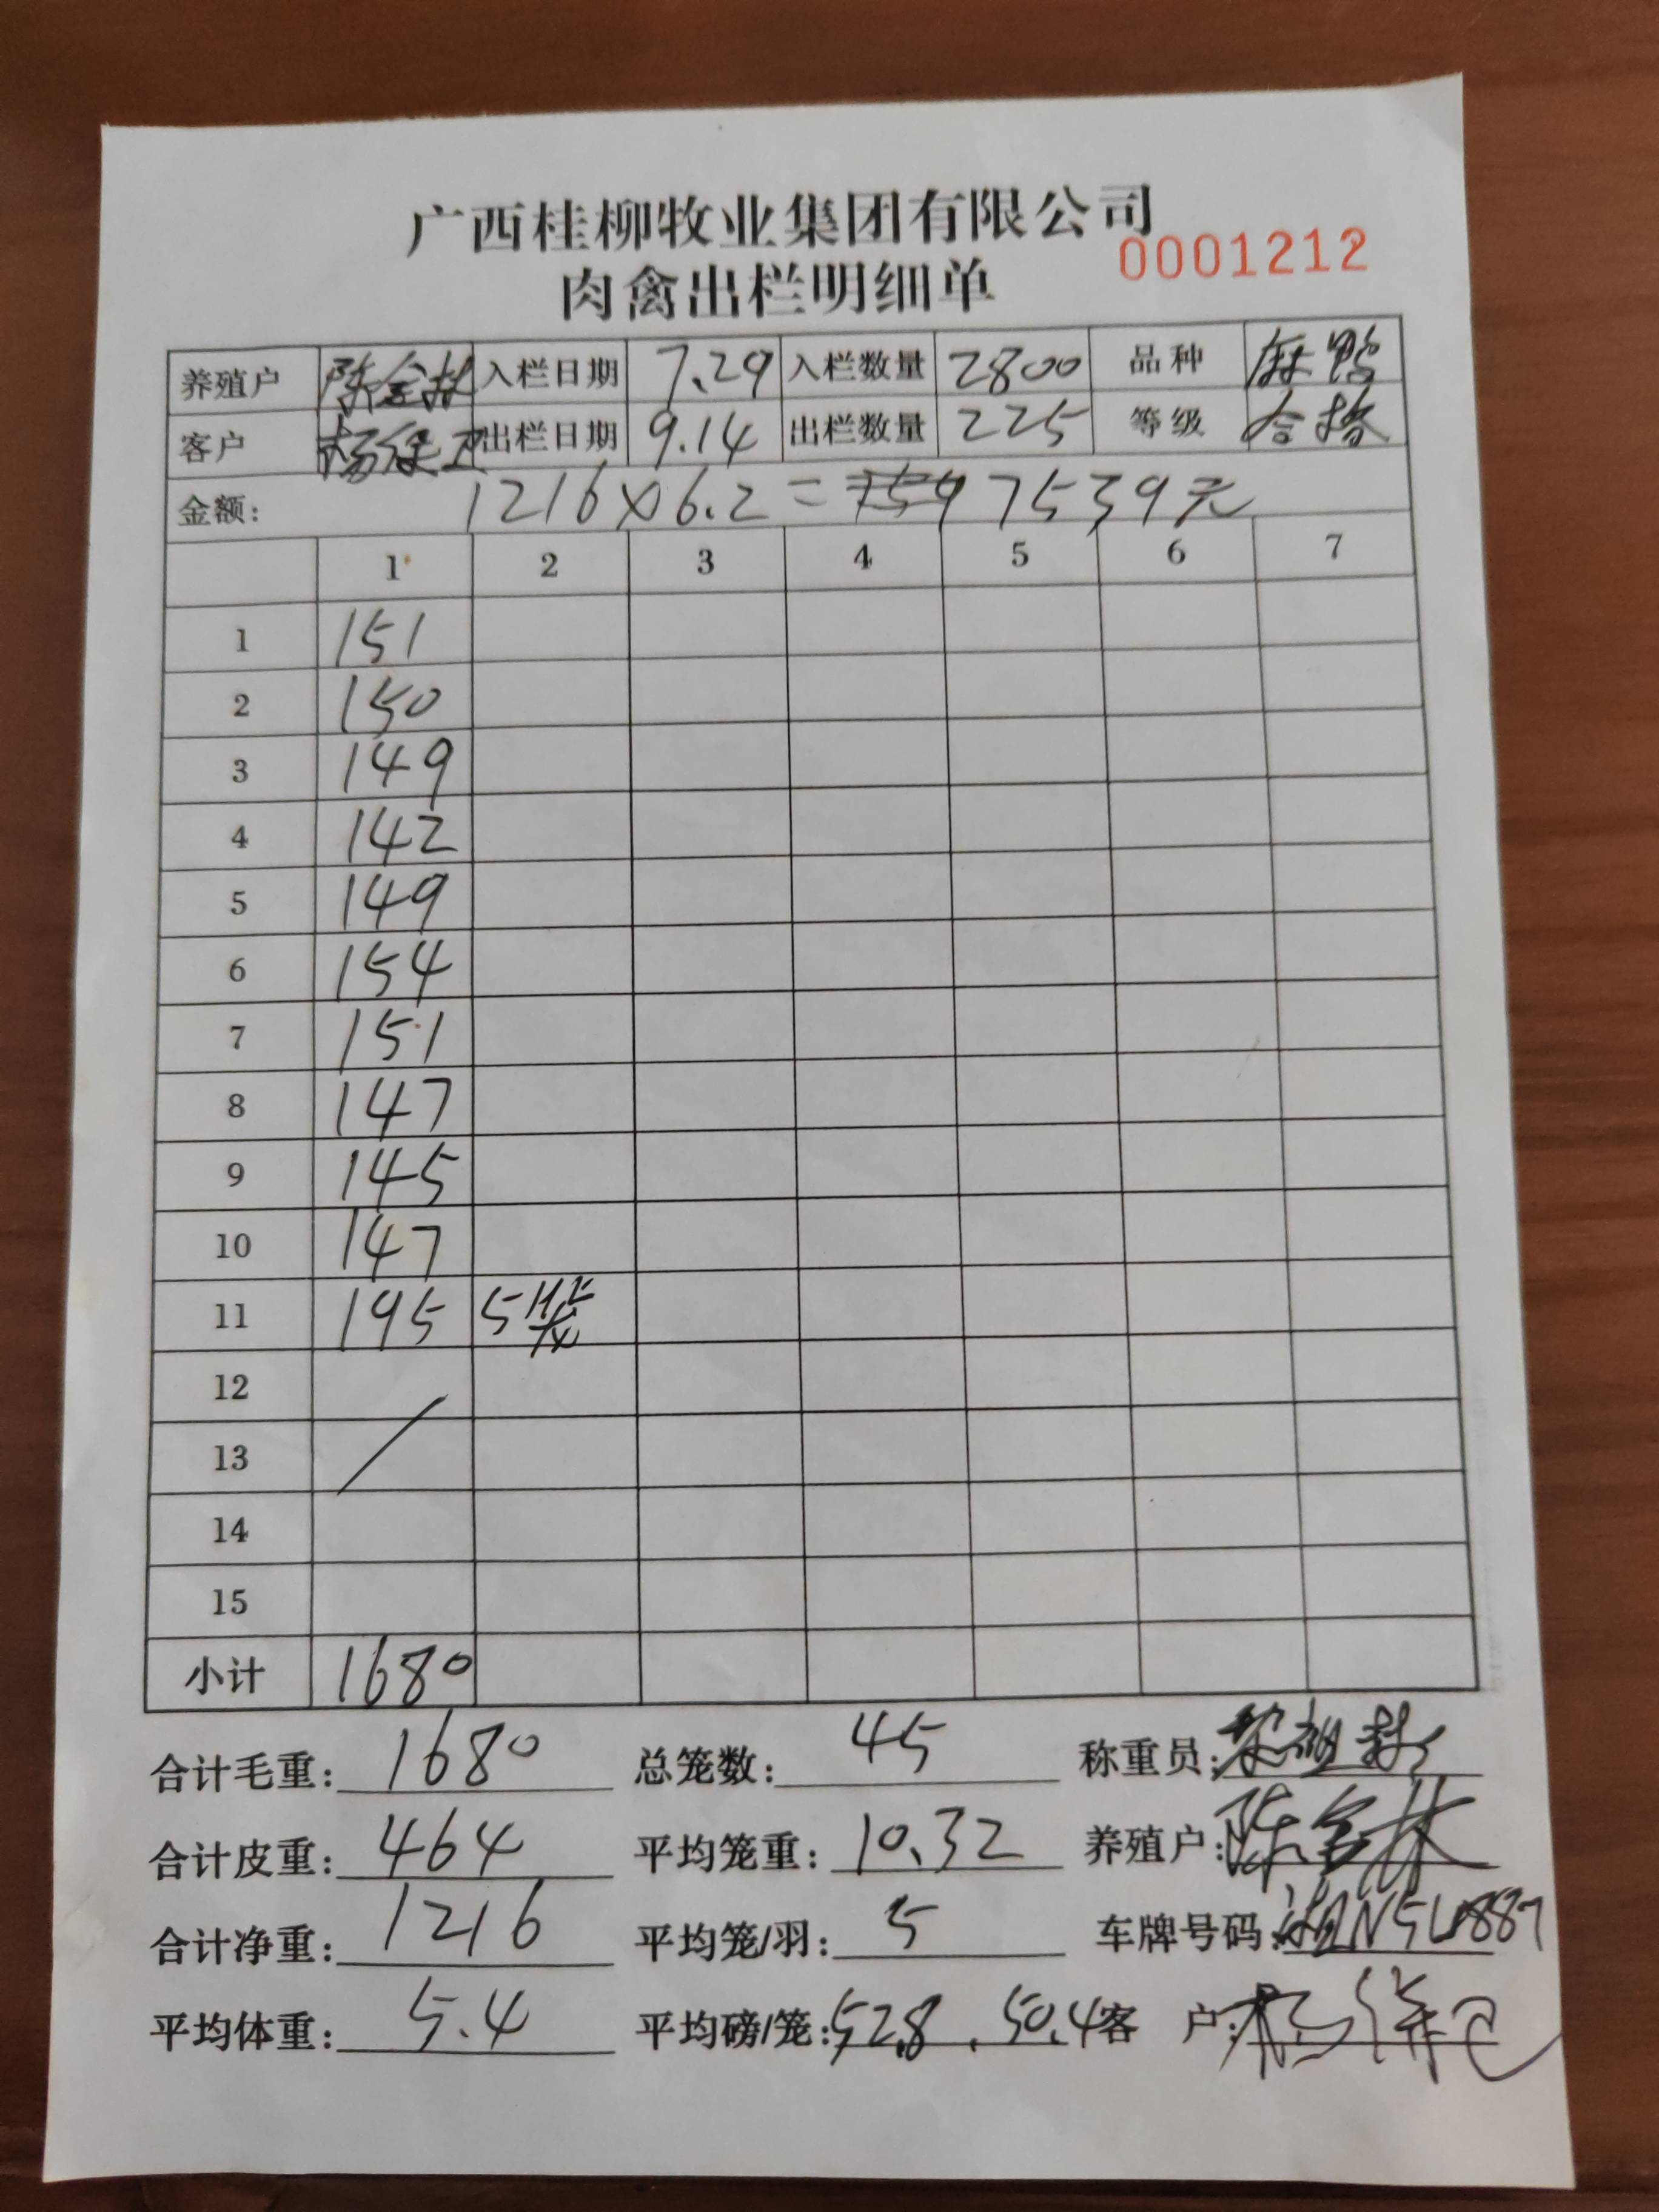 广西桂柳牧业集团有限公司
0001212
肉禽出栏明细单
养殖户 陈金林 入栏日期 7.29 入栏数量 2800 品种 麻鸭
客户 出栏日期 9.14 出栏数量 225 等级 合格
金额: 1216×6.2=7539元
1 2 3 4 5 6 7
1 151
2 150
3 149
4 142
5 149
6 154
7 151
8 147
9 145
10 147
11 195 5
12
13
14
15
小计 1680
合计毛重: 1680 总笼数: 45 称重员:
合计皮重: 464 平均笼重: 10.32 养殖户: 陈金林
合计净重: 1216 平均笼/羽: 5 车牌号码:
平均体重: 5.4 平均磅/笼: 52.8 . 50.4 客 户: